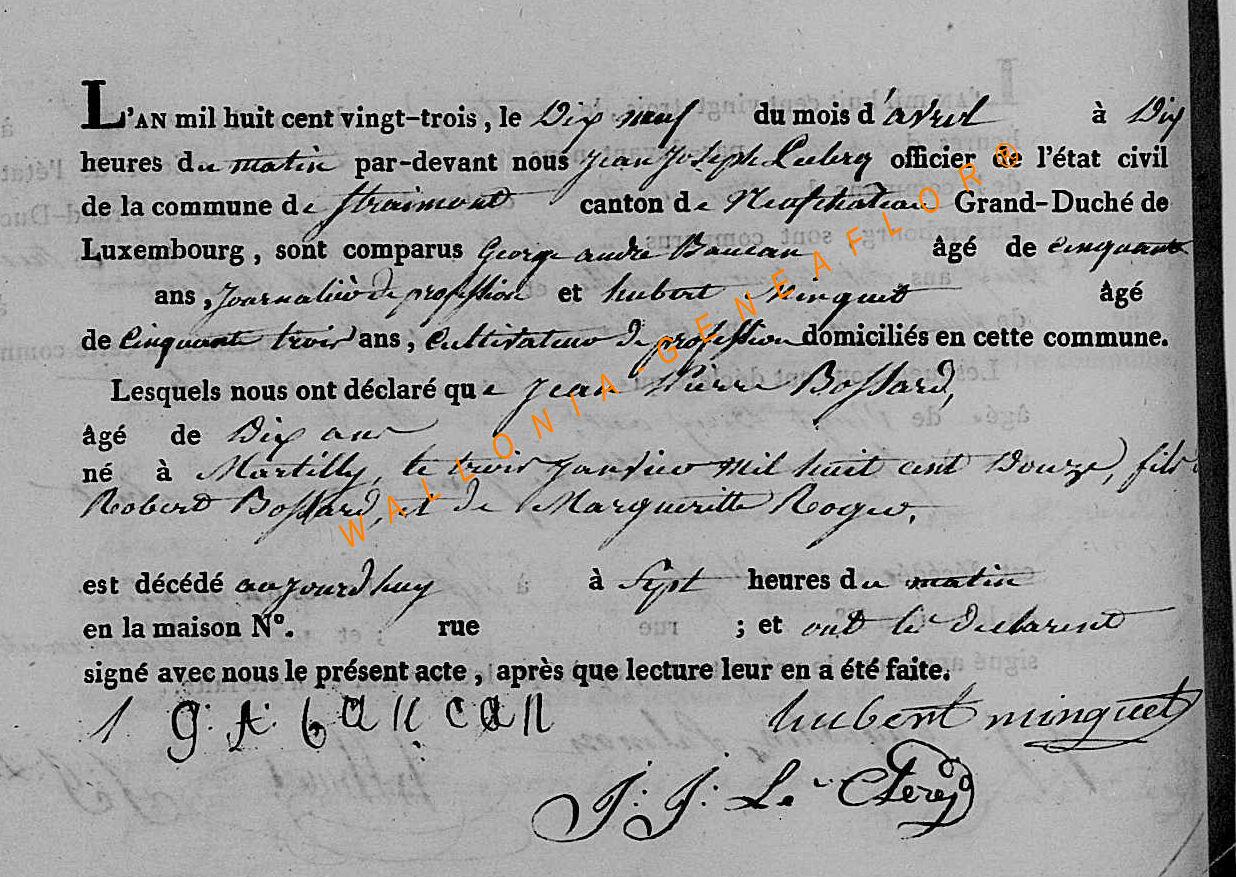 L'AN mil huit cent vingt-trois, le Dix neuf du mois d'avril à Dix
heures du matin par-devant nous Jean Joseph officier de l'état civil
de la commune de Straimont canton de Neufchateau Grand-Duché de
Luxembourg, sont comparus George andre Baucan âgé de cinquante
ans, Journalier de profession et hubert Minguet âgé
de Cinquante trois ans, Cultivateur de profession domiciliés en cette commune.
Lesquels nous ont déclaré que Jean Pierre Bossard,
âgé de Dix ans
né à Martilly, le trois Janvier mil huit cent Douze, fils
Robert Bossard, et de Margueritte Roger,
est décédé aujourdhuy à Sept heures du matin
en la maison N°. rue ; et ont les declarent
signé avec nous le présent acte, après que lecture leur en a été faite.
g: A: baucan hubert minguet
J: J: Le Clerq
WALLONIA-GENEAFLOR®